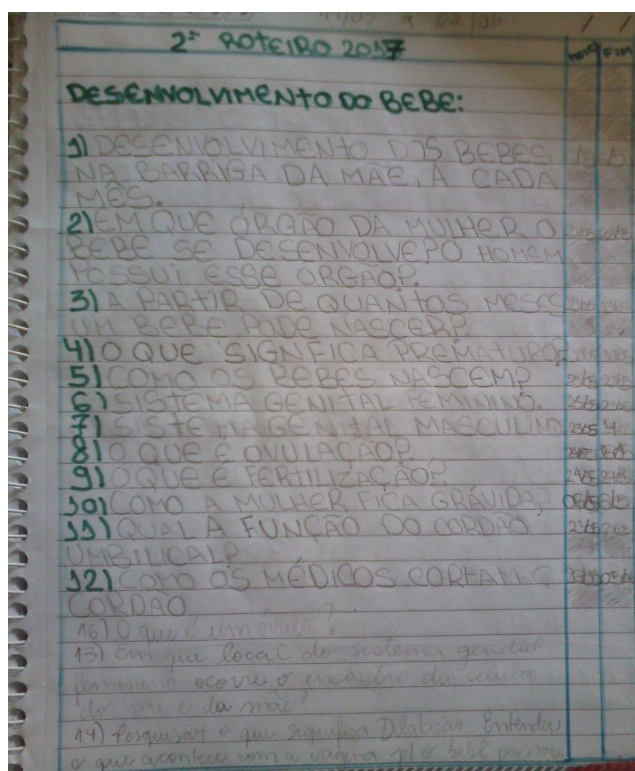 2º ROTEIRO 2017
FIM
DESENVOLVIMENTO DO BEBE:
1) DESENVOLVIMENTO DOS BEBES
NA BARRIGA DA MÃE, A CADA
MÊS.
2) EM QUE ORGÃO DA MULHER O
BEBE SE DESENVOLVE? O HOMEM
POSSUI ESSE ORGÃO?
3) A PARTIR DE QUANTOS MESES
UM BEBE PODE NASCER?
4) O QUE SIGNFICA PREMATURO?
5) COMO OS BEBES NASCEM?
6) SISTEMA GENITAL FEMININO.
7) SISTEMA GENITAL MASCULINO
8) O QUE É OVULAÇÃO?
9) O QUE É FERTILIZAÇÃO?
10) COMO A MULHER FICA GRÁVIDA?
11) QUAL A FUNÇÃO DO CORDÃO
UMBILICAL?
12) COMO OS MÉDICOS CORTAM O
CORDÃO
15) O que é um óvulo?
13) Em que local do sistema genital
feminino ocorre o encontro da célula
do pai e da mãe?
14) Pesquisar o que significa Dilatação. Entender
o que acontece com a vagina p/ o bebê passar